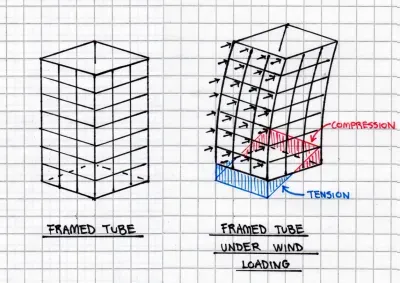 COMPRESSION
TENSION
FRAMED TUBE
FRAMED TUBE
UNDER WIND
LOADING